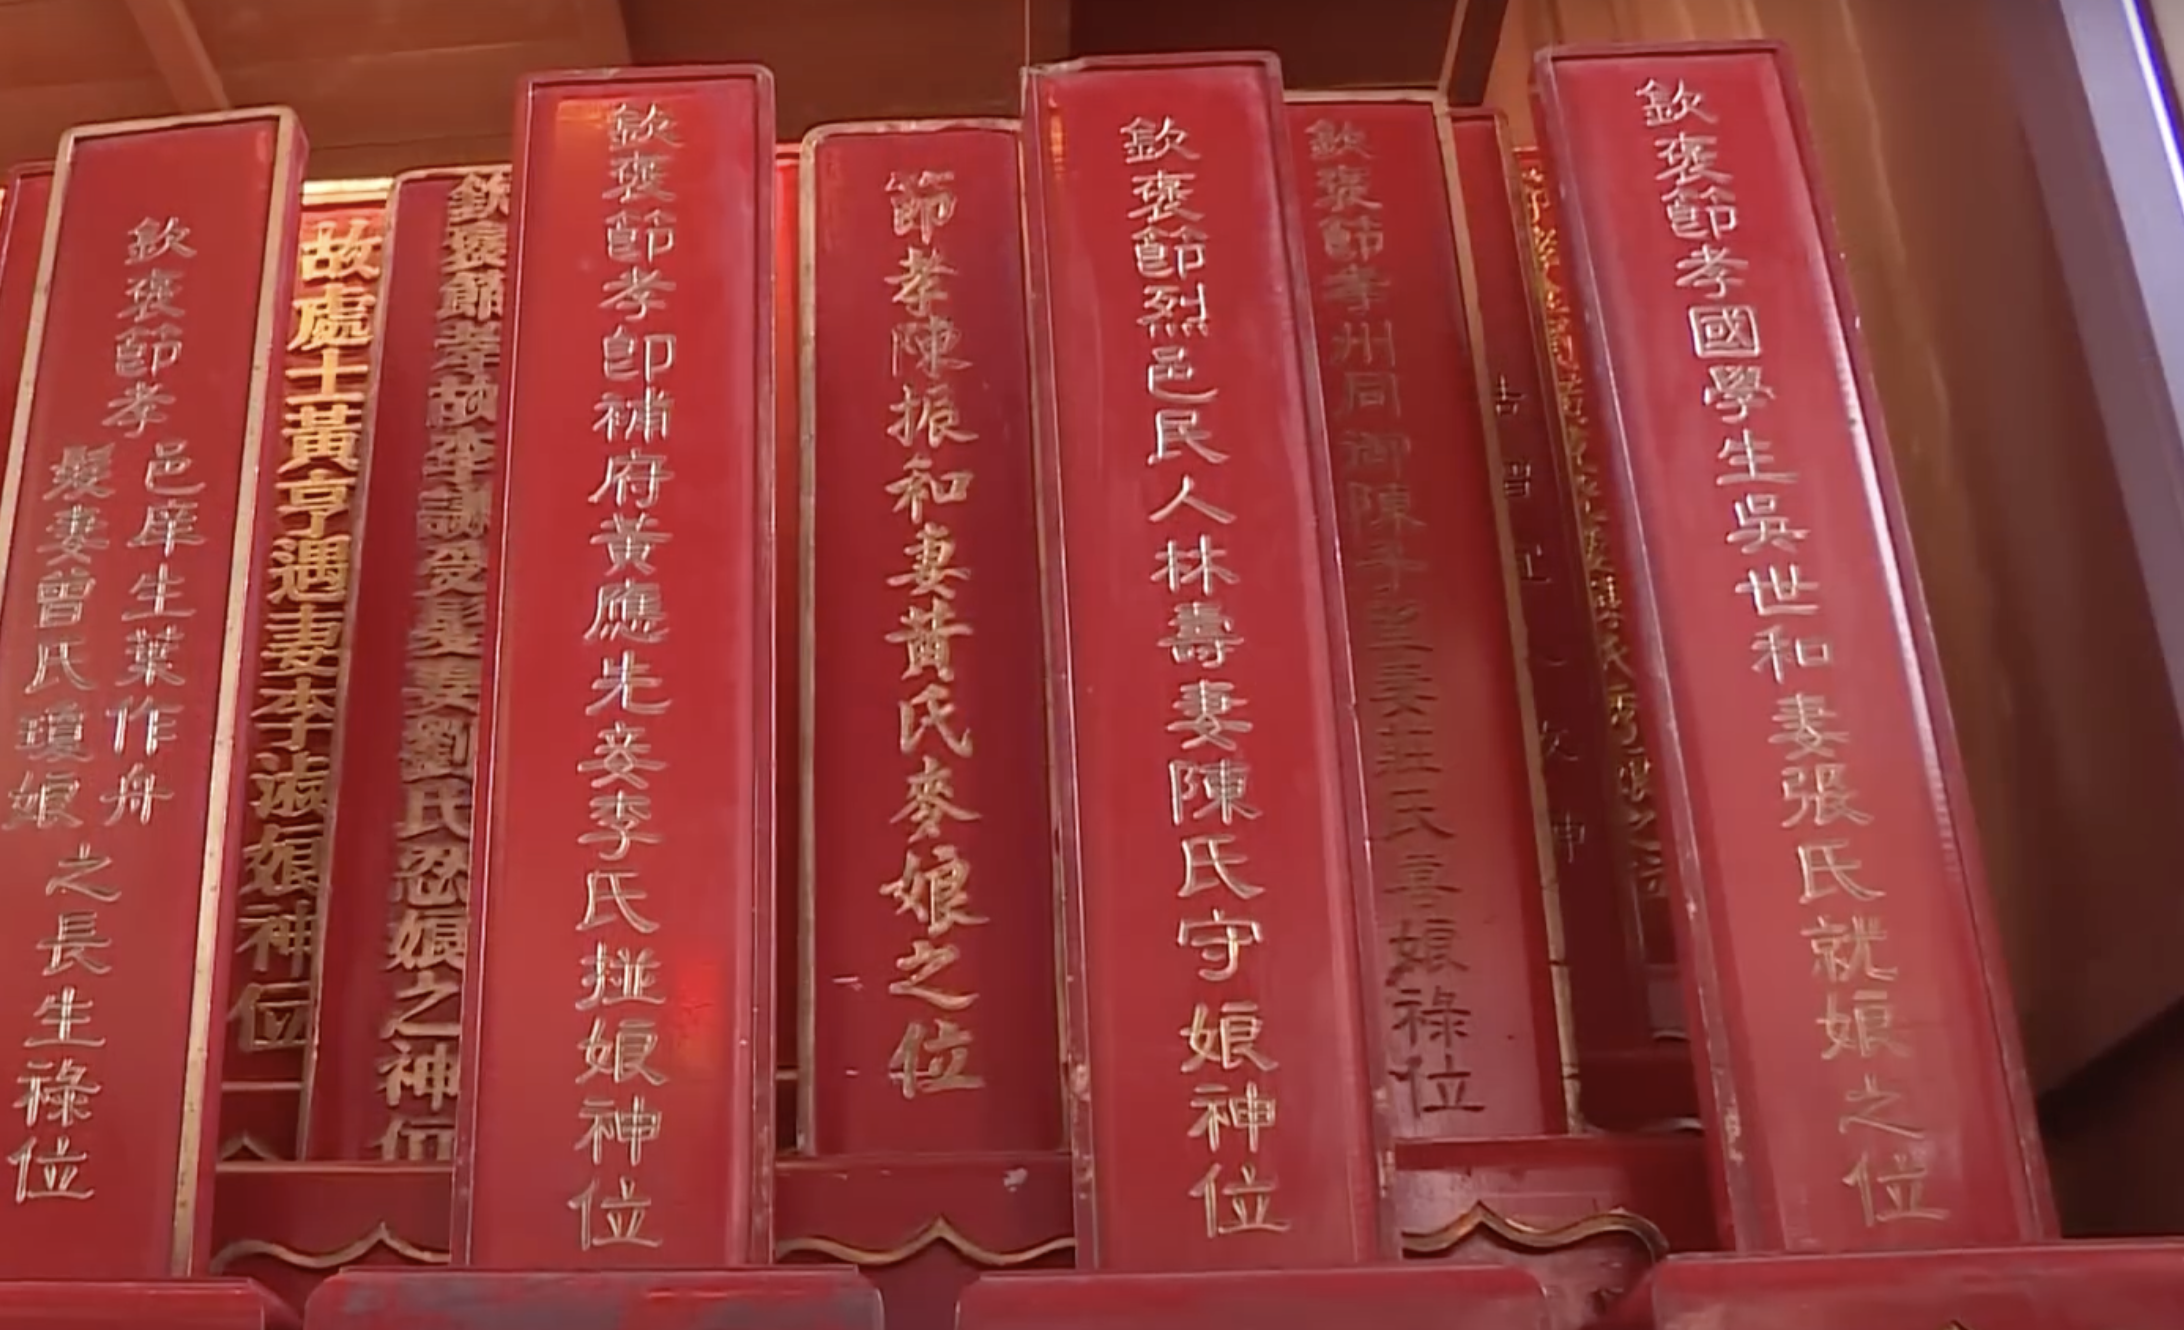 欽褒節孝國學生吳世和妻張氏就娘之位
欽褒節孝州同
陳
妻莊氏喜娘祿位
欽褒節烈邑民人林壽妻陳氏守娘神位
節孝陳振和妻黃氏麥娘之位
欽褒節孝即補府黃應先妾李氏㨗娘神位
欽褒節孝故李謙受髮妻劉氏忍娘之神位
故處士黃亨遇妻李淑娘神位
欽褒節孝
邑庠生葉作舟
髮妻曾氏瓊娘
之長生祿位